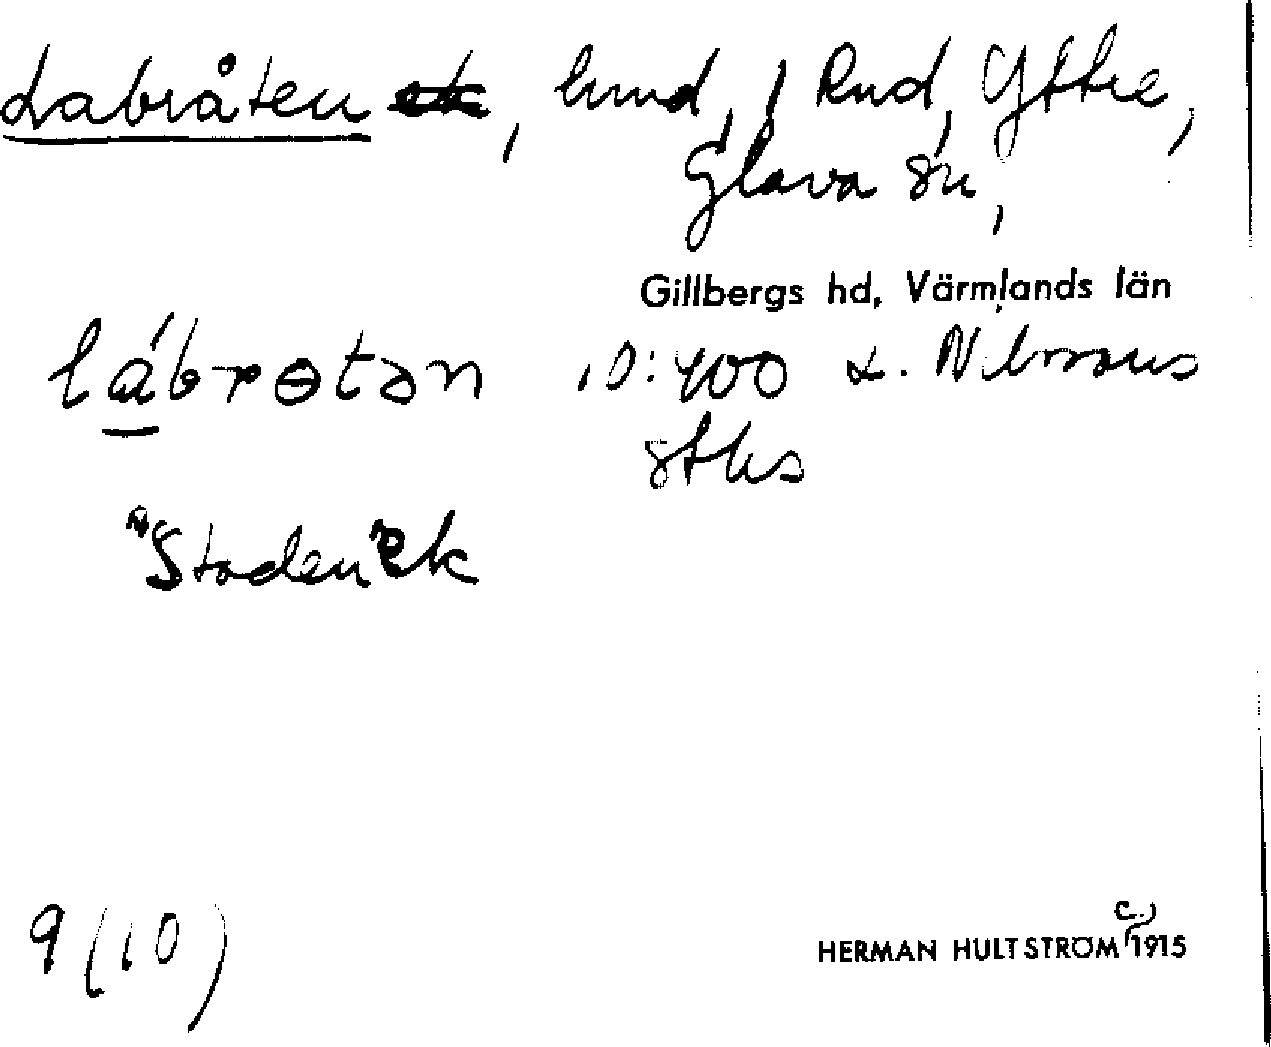 Labråten ek, lund, i Rud, Yttre,
Glava sn,
Gillbergs hd, Värmlands län
lábrɵtən 10:400 L. N
"Staden" ek
9(10)
HERMAN HULTSTRÖM (c.) 1915